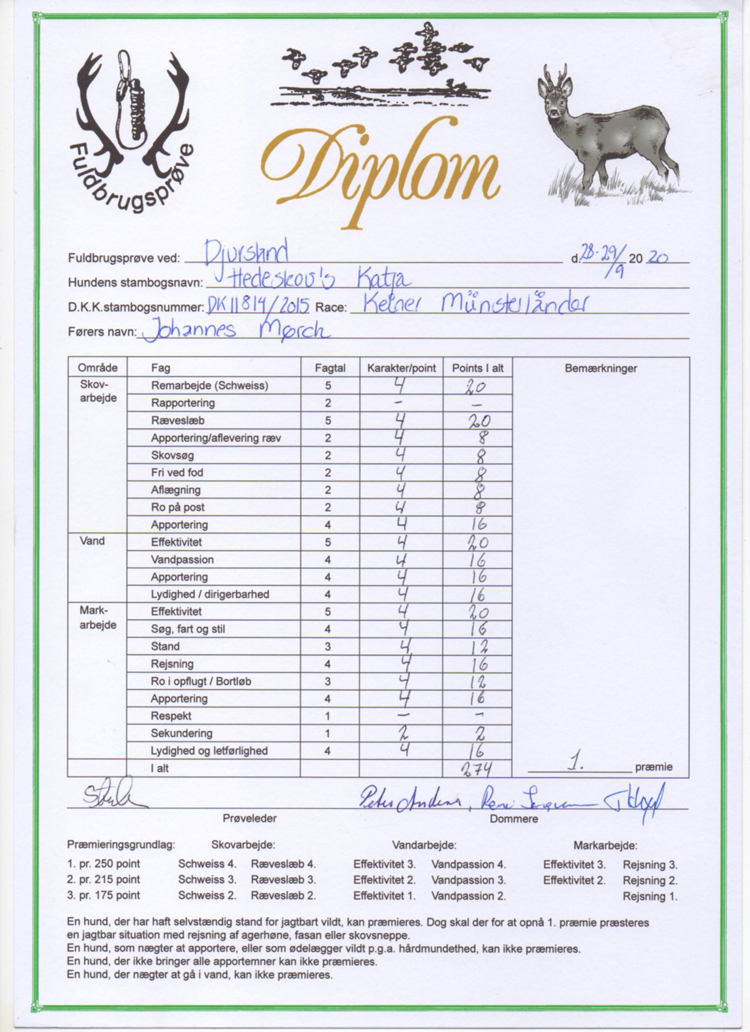 Fuldbrugsprøve
Diplom
Fuldbrugsprøve ved: Djursland d. 28-29/9 20 20
Hundens stambogsnavn: Hedeskov's Katja
D.K.K.stambogsnummer: DK11814/2015 Race: Keiner Münsterländer
Førers navn: Johannes Mørch
Område Fag Fagtal Karakter/point Points I alt Bemærkninger
Skov-arbejde Remarbejde (Schweiss) 5 4 20
Rapportering 2 - -
Ræveslæb 5 4 20
Apportering/aflevering ræv 2 4 8
Skovsøg 2 4 8
Fri ved fod 2 4 8
Aflægning 2 4 8
Ro på post 2 4 8
Apportering 4 4 16
Vand Effektivitet 5 4 20
Vandpassion 4 4 16
Apportering 4 4 16
Lydighed / dirigerbarhed 4 4 16
Mark-arbejde Effektivitet 5 4 20
Søg, fart og stil 4 4 16
Stand 3 4 12
Rejsning 4 4 16
Ro i opflugt / Bortløb 3 4 12
Apportering 4 4 16
Respekt 1 - -
Sekundering 1 2 2
Lydighed og letførlighed 4 4 16
I alt 274 1. præmie
Peter Anders
Prøveleder Dommere
Præmieringsgrundlag: Skovarbejde: Vandarbejde: Markarbejde:
1. pr. 250 point Schweiss 4. Ræveslæb 4. Effektivitet 3. Vandpassion 4. Effektivitet 3. Rejsning 3.
2. pr. 215 point Schweiss 3. Ræveslæb 3. Effektivitet 2. Vandpassion 3. Effektivitet 2. Rejsning 2.
3. pr. 175 point Schweiss 2. Ræveslæb 2. Effektivitet 1. Vandpassion 2. Rejsning 1.
En hund, der har haft selvstændig stand for jagtbart vildt, kan præmieres. Dog skal der for at opnå 1. præmie præsteres
en jagtbar situation med rejsning af agerhøne, fasan eller skovsneppe.
En hund, som nægter at apportere, eller som ødelægger vildt p.g.a. hårdmundethed, kan ikke præmieres.
En hund, der ikke bringer alle apportemner kan ikke præmieres.
En hund, der nægter at gå i vand, kan ikke præmieres.